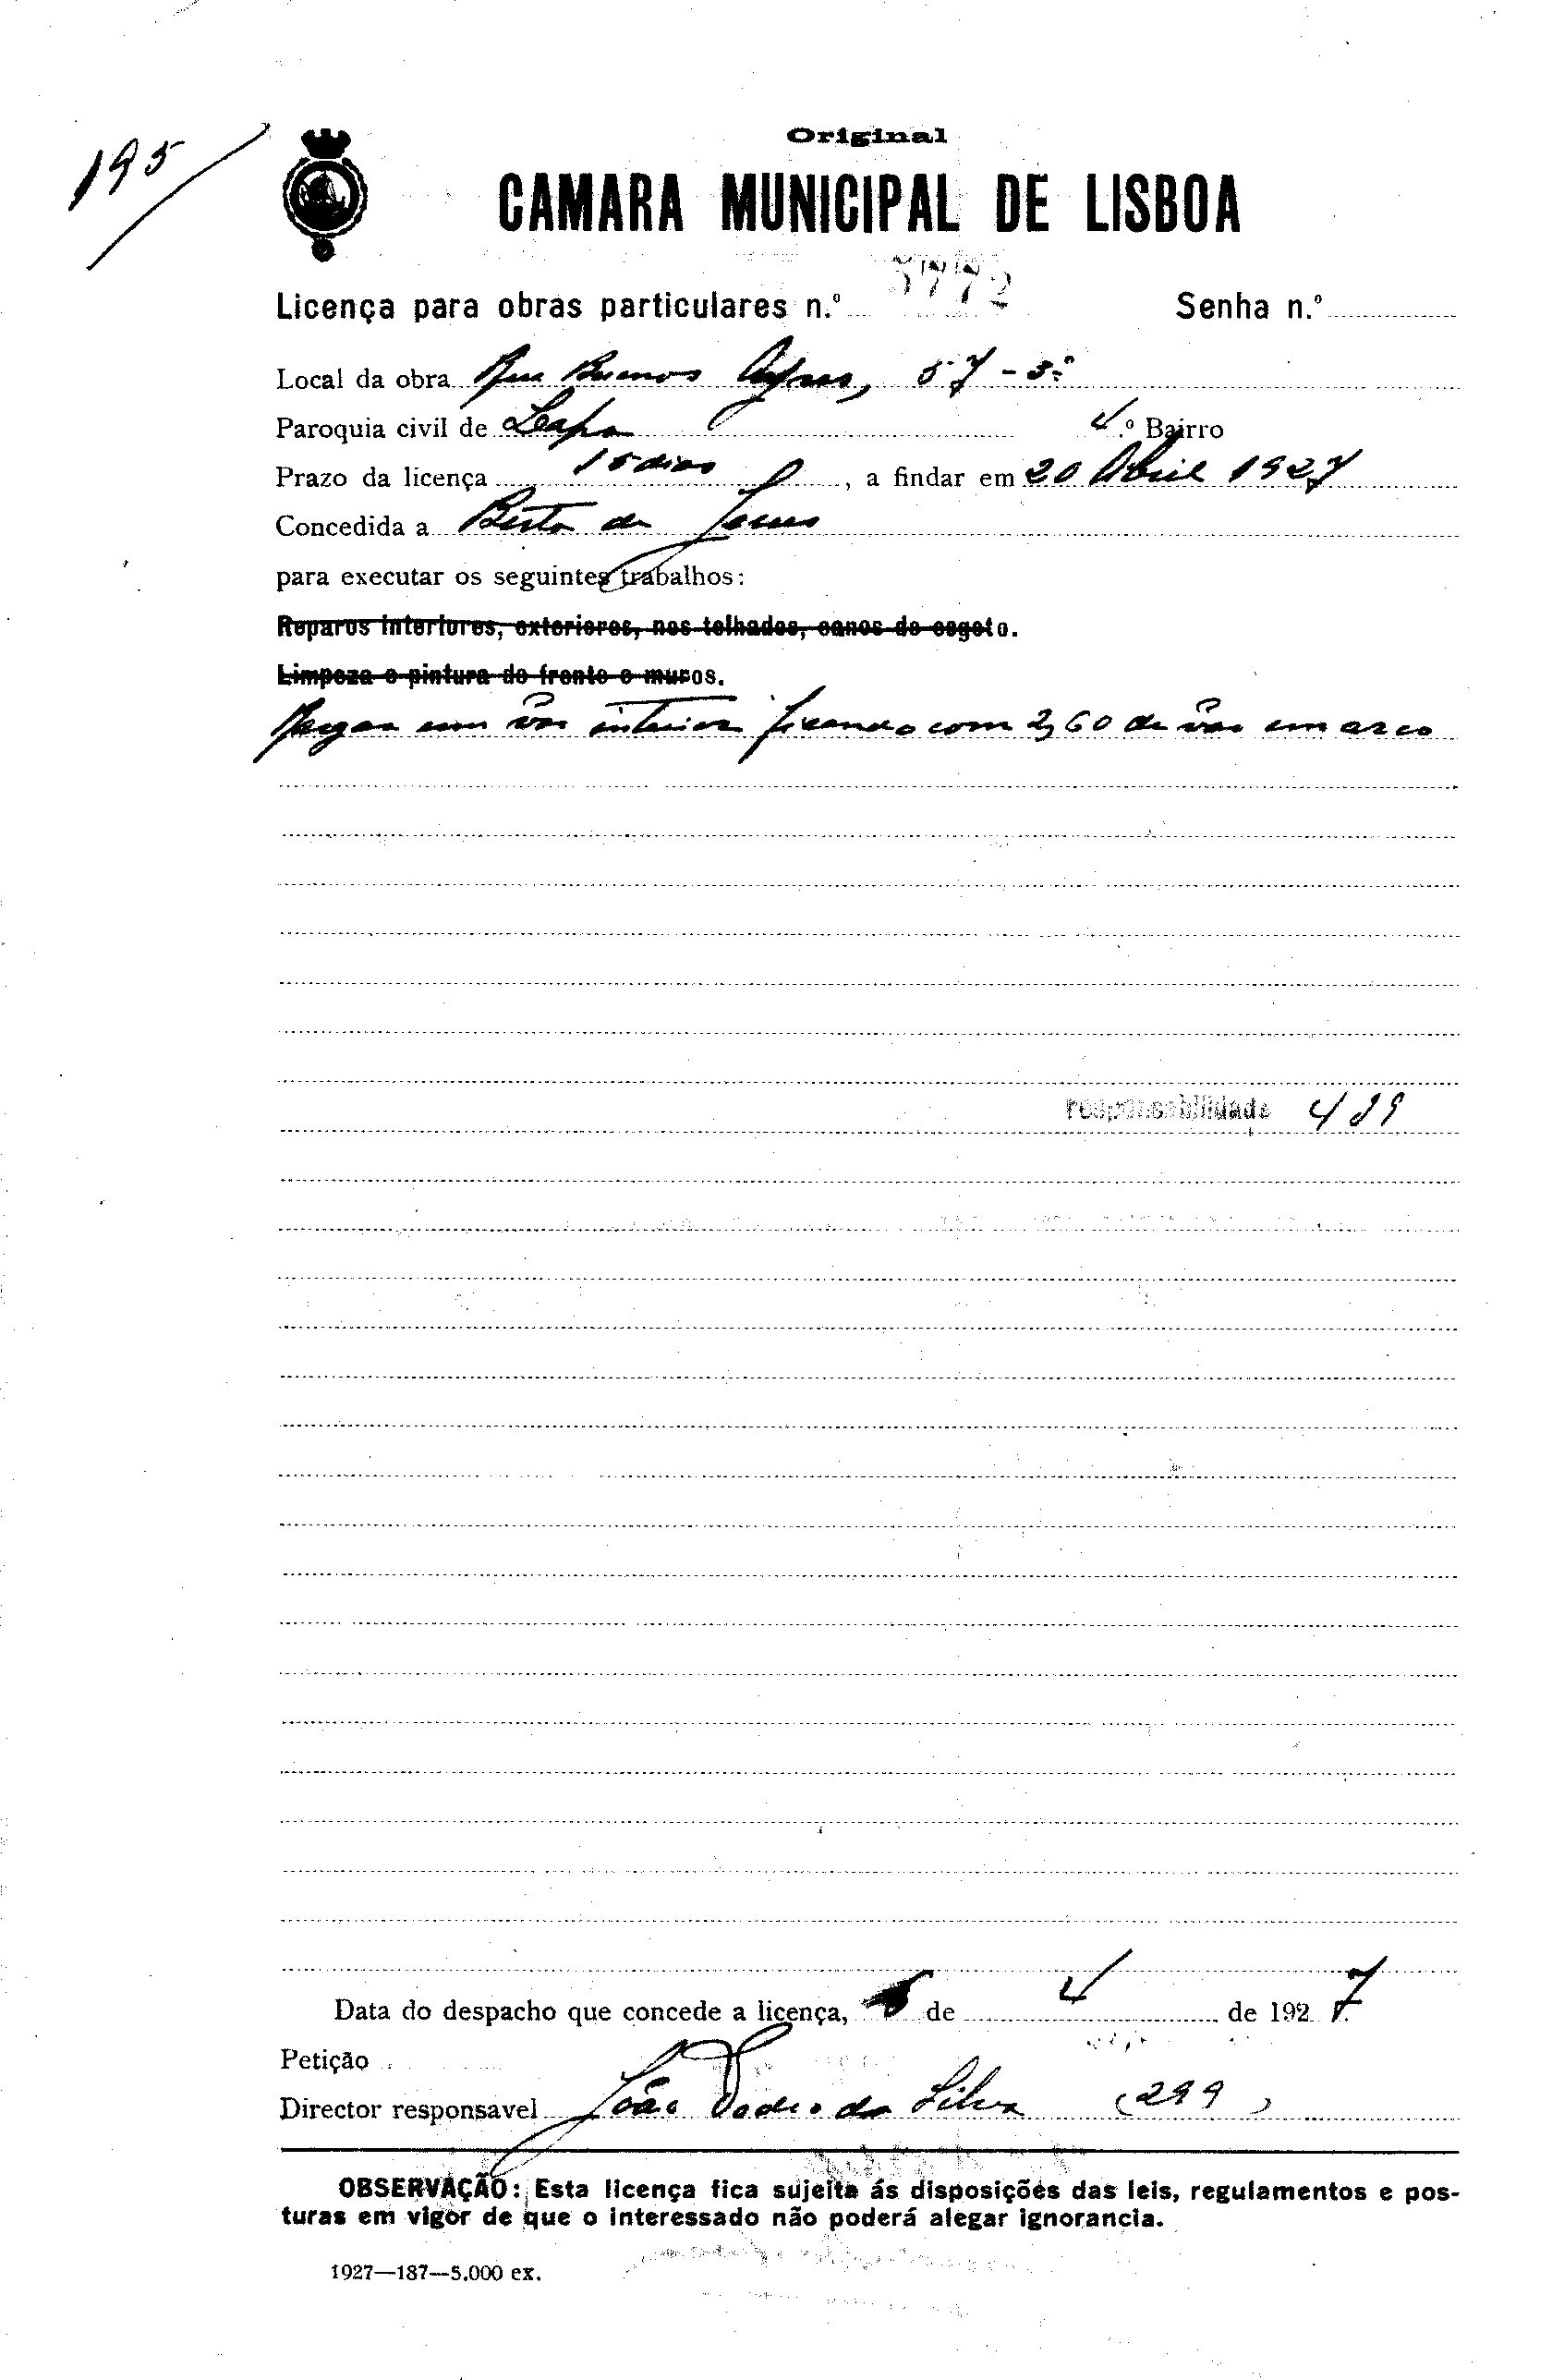 195
Original
CAMARA MUNICIPAL DE LISBOA
Licença para obras particulares n.º Senha n.º
Local da obra Rua Buenos Ayres, 57-3º
Paroquia civil de Lapa 4.º Bairro
Prazo da licença 15 dias, a findar em 20 Abril 1927
Concedida a Berta de Jesus
para executar os seguintes trabalhos:
Reparos interiores, exteriores, nos telhados, canos de esgoto.
Limpeza e pintura de frente e muros.
Rasgar um vão interior ficando com 2,60 de vão em arco
responsabilidade 499
Data do despacho que concede a licença, 5 de 4 de 1927.
Petição
Director responsavel João Pedro da Silva (299)
OBSERVAÇÃO: Esta licença fica sujeita ás disposições das leis, regulamentos e pos-
turas em vigor de que o interessado não poderá alegar ignorancia.
1927—187—5.000 ex.